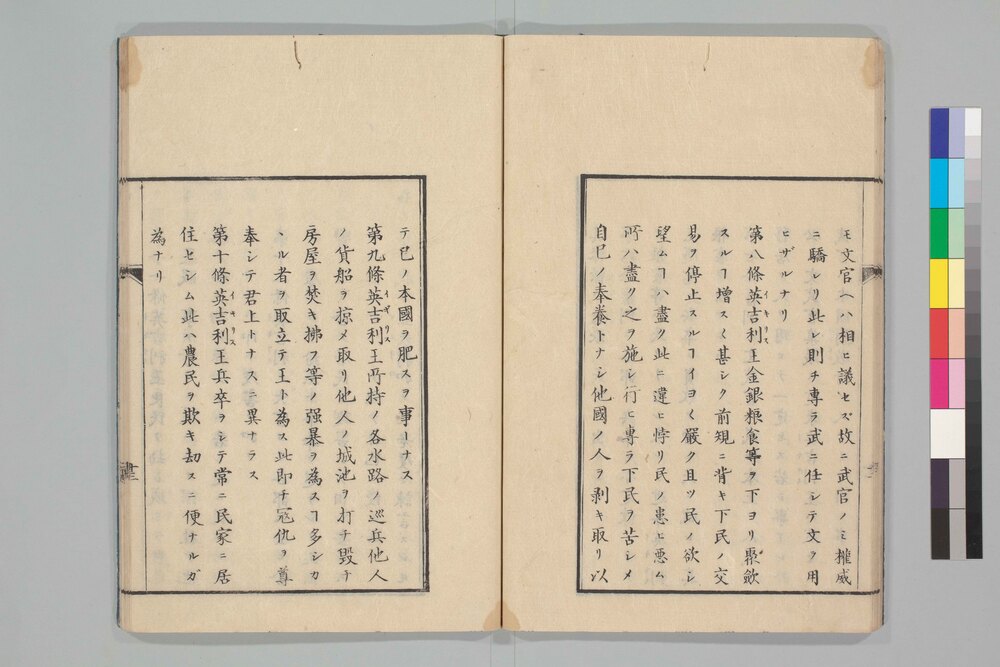 モ文官ヘハ相ヒ議セズ故ニ武官ノミ權威
ニ驕レリ此レ則チ專ラ武ニ任シテ文ヲ用
ヒザルナリ
第八條英吉利王金銀粮食等ヲ下ヨリ聚歛
イキリス
スルヿ増スく甚シク前規ニ背キ下民ノ交
易ヲ停止スルヿイヨく嚴ク且ツ民ノ欲シ
望ムヿハ盡ク此ニ違ヒ悖リ民ノ患ヒ悪ム
所ハ盡ク之ヲ施シ行ヒ專ラ下民ヲ苦シメ
自己ノ奉養トナシ他國ノ人ヲ剥キ取リ以
テ己ノ本國ヲ肥スヲ事トナス
第九條英吉利王所持ノ各水路ノ巡兵他人
イギリス
ノ貨船ヲ掠メ取リ他人ノ城池ヲ打チ毀チ
房屋ヲ焚キ拂フ等ノ强暴ヲ為スヿ多シカ
ヽル者ヲ取立テ王ト為ス此即チ冦仇ヲ尊
奉シテ君上トナスニ異ナラス
第十條英吉利王兵卒ヲシテ常ニ民家ニ居
イキリス
住セシム此ハ農民ヲ欺キ劫スニ便ナルガ
為ナリ